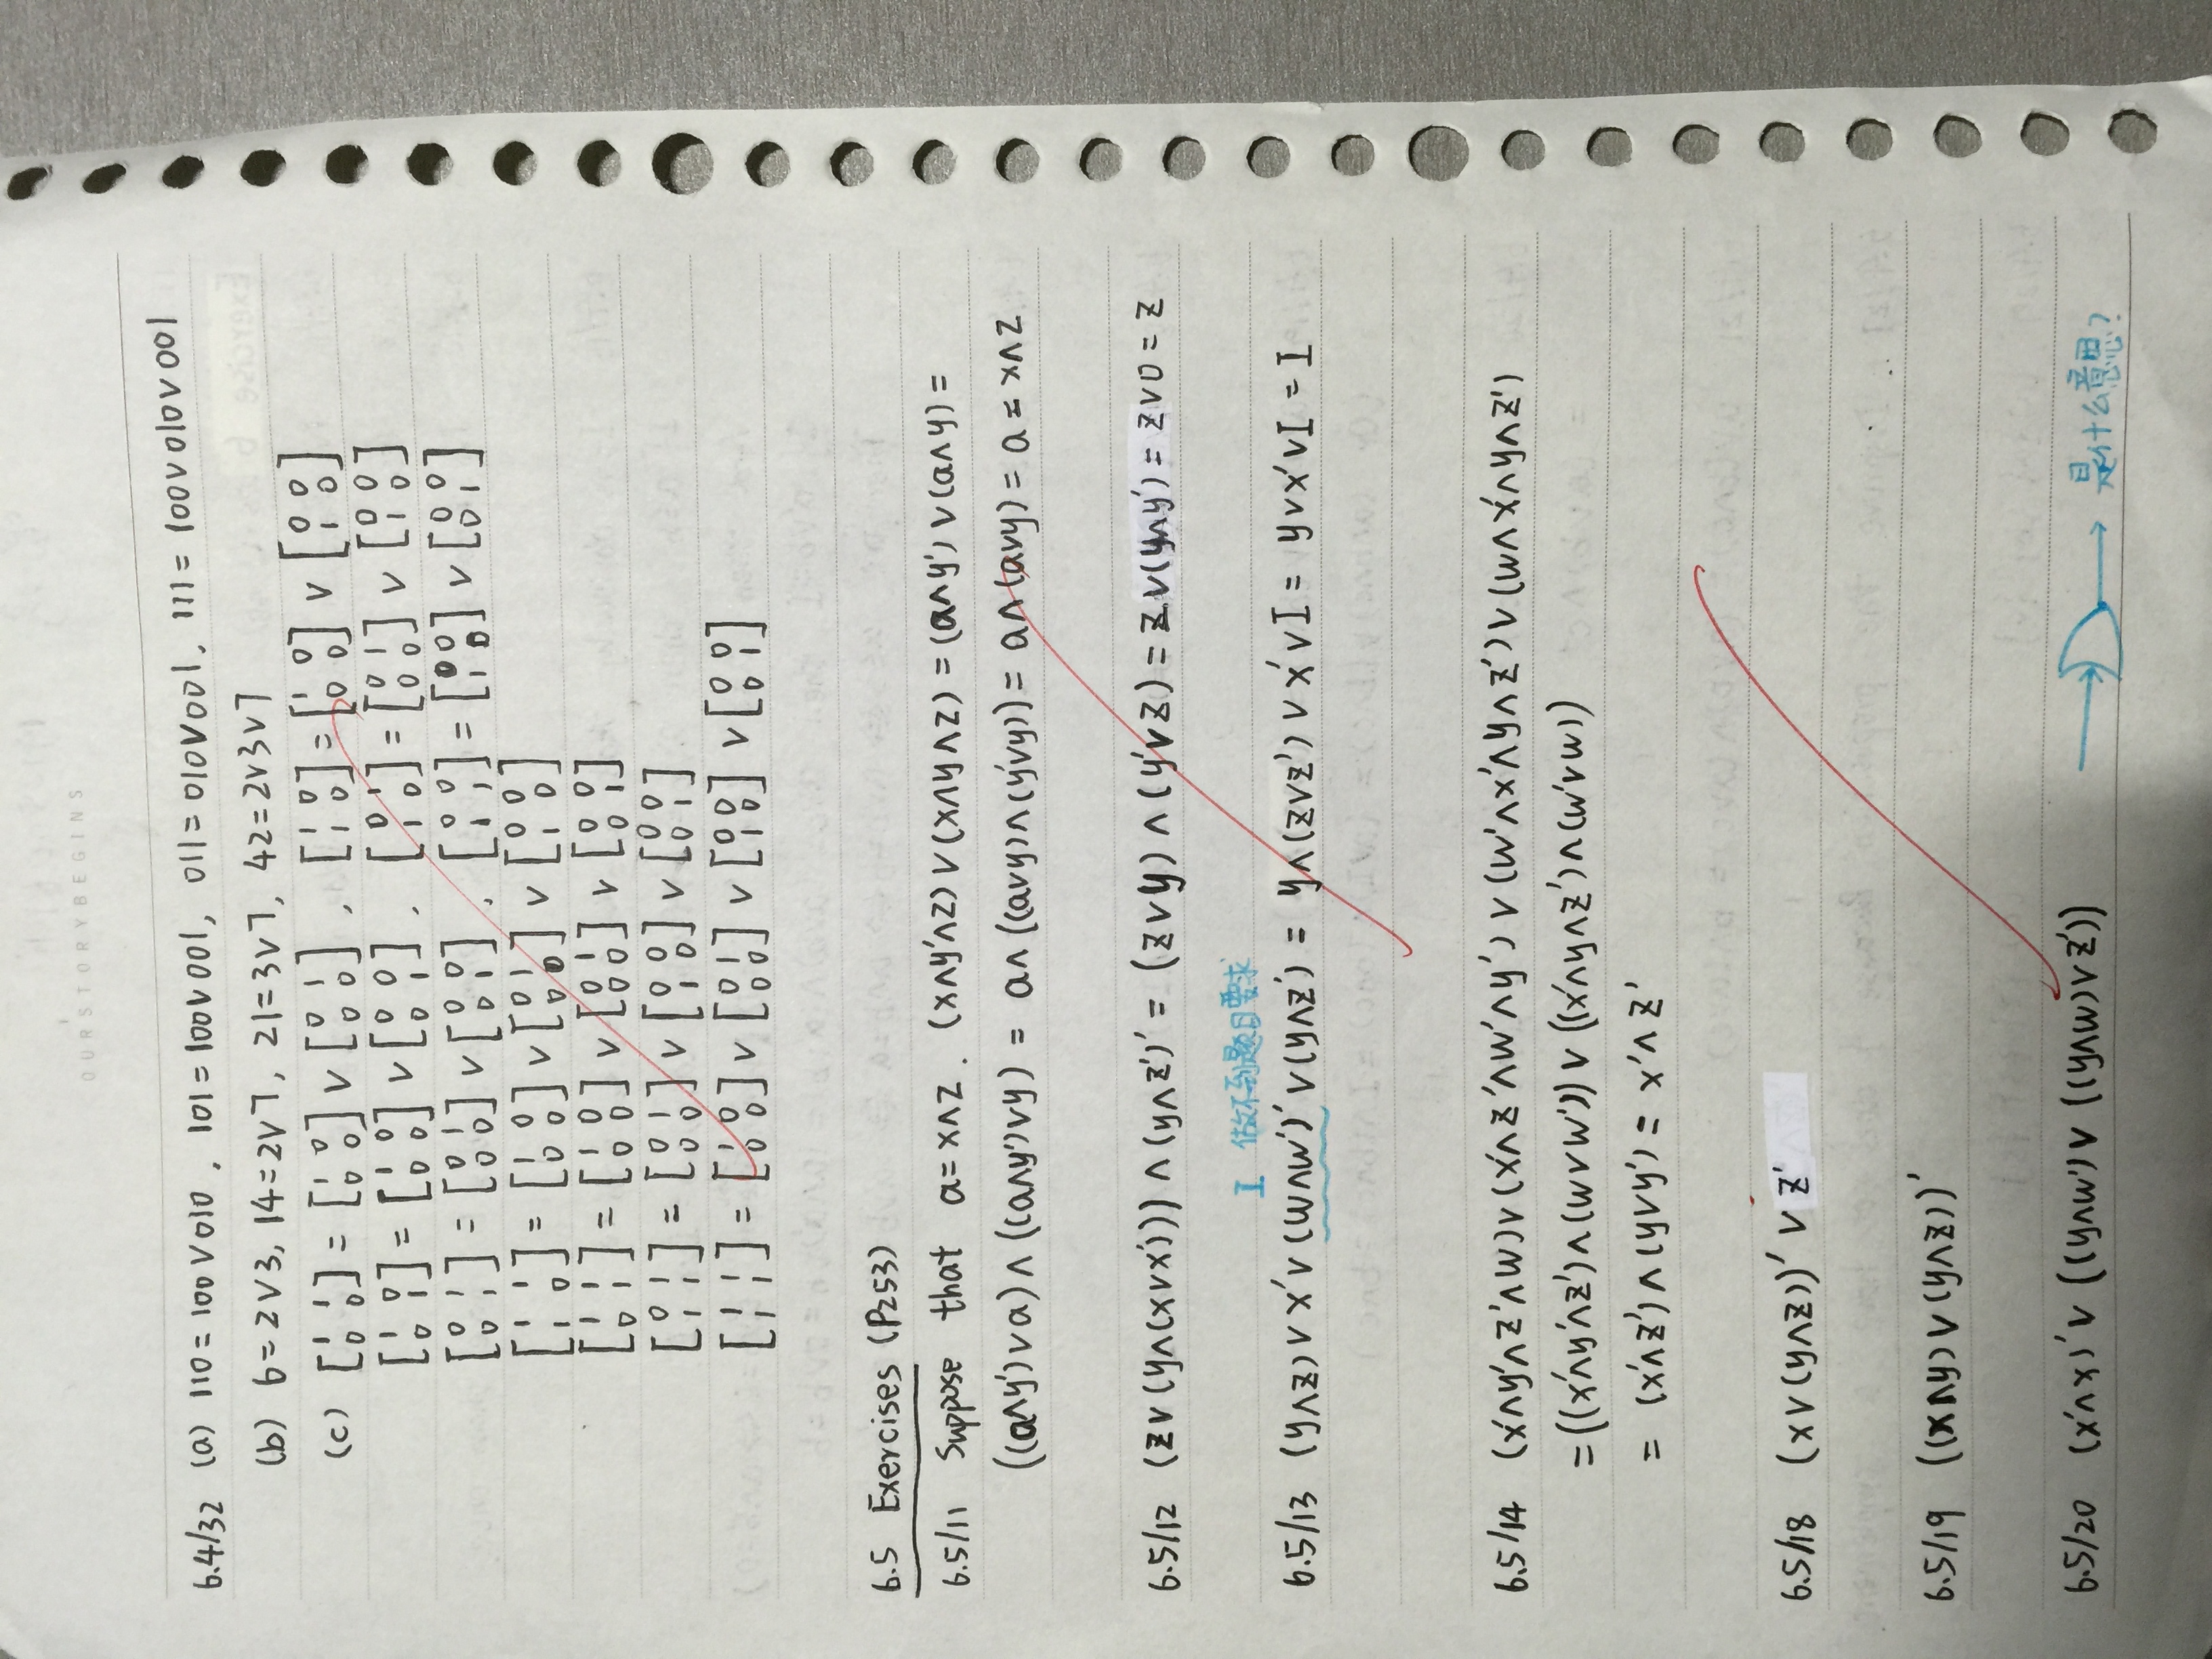 OURSTORYBEGINS
6.4/32 (a) 110 = 100 ∨ 010 , 101 = 100 ∨ 001, 011 = 010 ∨ 001, 111 = 100 ∨ 010 ∨ 001
(b) 6 = 2∨3, 14 = 2∨7, 21 = 3∨7, 42 = 2∨3∨7
(c) [1 1; 0 0] = [1 0; 0 0] ∨ [0 1; 0 0] , [1 0; 1 0] = [1 0; 0 0] ∨ [0 0; 1 0]
[1 0; 0 1] = [1 0; 0 0] ∨ [0 0; 0 1] , [0 1; 1 0] = [0 1; 0 0] ∨ [0 0; 1 0]
[0 1; 0 1] = [0 1; 0 0] ∨ [0 0; 0 1] , [0 0; 1 1] = [0 0; 1 0] ∨ [0 0; 0 1]
[1 1; 1 0] = [1 0; 0 0] ∨ [0 1; 0 0] ∨ [0 0; 1 0]
[1 1; 0 1] = [1 0; 0 0] ∨ [0 1; 0 0] ∨ [0 0; 0 1]
[0 1; 1 1] = [0 1; 0 0] ∨ [0 0; 1 0] ∨ [0 0; 0 1]
[1 1; 1 1] = [1 0; 0 0] ∨ [0 1; 0 0] ∨ [0 0; 1 0] ∨ [0 0; 0 1]
6.5 Exercises (P253)
6.5/11 Suppose that a = x∧z . (x∧y'∧z) ∨ (x∧y∧z) = (a∧y') ∨ (a∧y) =
((a∧y')∨a) ∧ ((a∧y')∨y) = a∧((a∨y)∧(y'∨y)) = a∧(a∨y) = a = x∧z
6.5/12 (z∨(y∧(x∨x'))) ∧ (y∧z')' = (z∨y) ∧ (y'∨z) = z∨(y∧y') = z∨0 = z
I 做不到题目要求
6.5/13 (y∧z)∨x'∨(w∧w')'∨(y∧z') = y∧(z∨z')∨x'∨I = y∨x'∨I = I
6.5/14 (x'∧y'∧z'∧w)∨(x'∧z'∧w'∧y')∨(w'∧x'∧y∧z')∨(w∧x'∧y∧z')
= ((x'∧y'∧z')∧(w∨w'))∨((x'∧y∧z')∧(w'∨w))
= (x'∧z')∧(y∨y') = x'∧z'
6.5/18 (x∨(y∧z))' ∨ z'
6.5/19 ((x∧y)∨(y∧z))'
6.5/20 (x'∧x)'∨((y∧w')∨((y∧w)∨z')) 是什么意思?